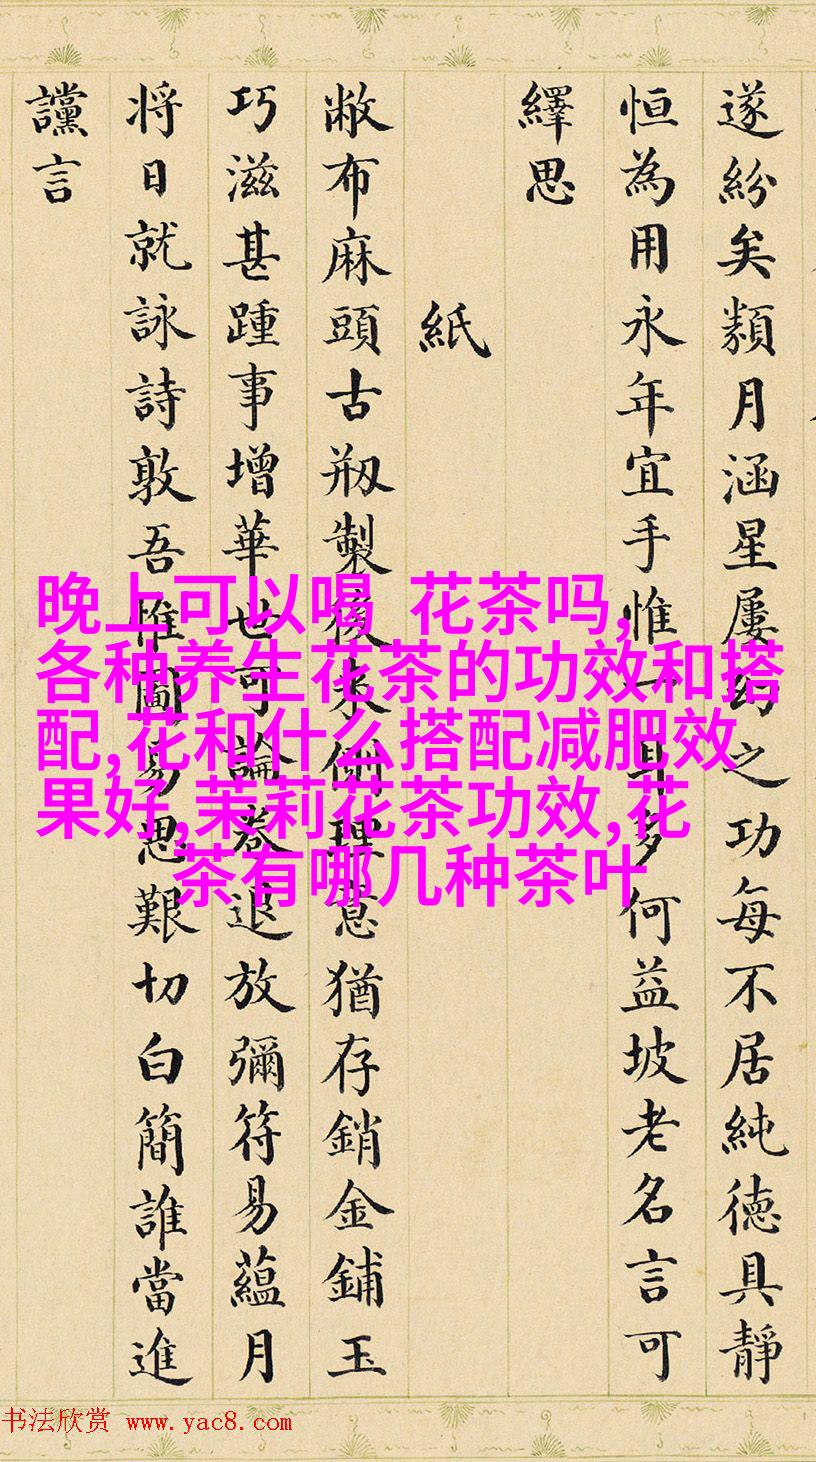 遂紛矣類月涵星屢之功每不居純德具靜
恒為用永年宜手惟一耳多何益坡老名言可
繹思
紙
敝布麻頭古剏製後来側理意猶存銷金鋪玉
巧滋甚踵事增華世可論卷退放彌符易蘊月
将日就詠詩敦吾惟圖易思艱切白簡誰當進
讜言
晚上可以喝 花茶吗,
各种养生花茶的功效和搭
配,花和什么搭配减肥效
果好,茉莉花茶功效,花
茶有哪几种茶叶
书法欣赏 www.yac8.com